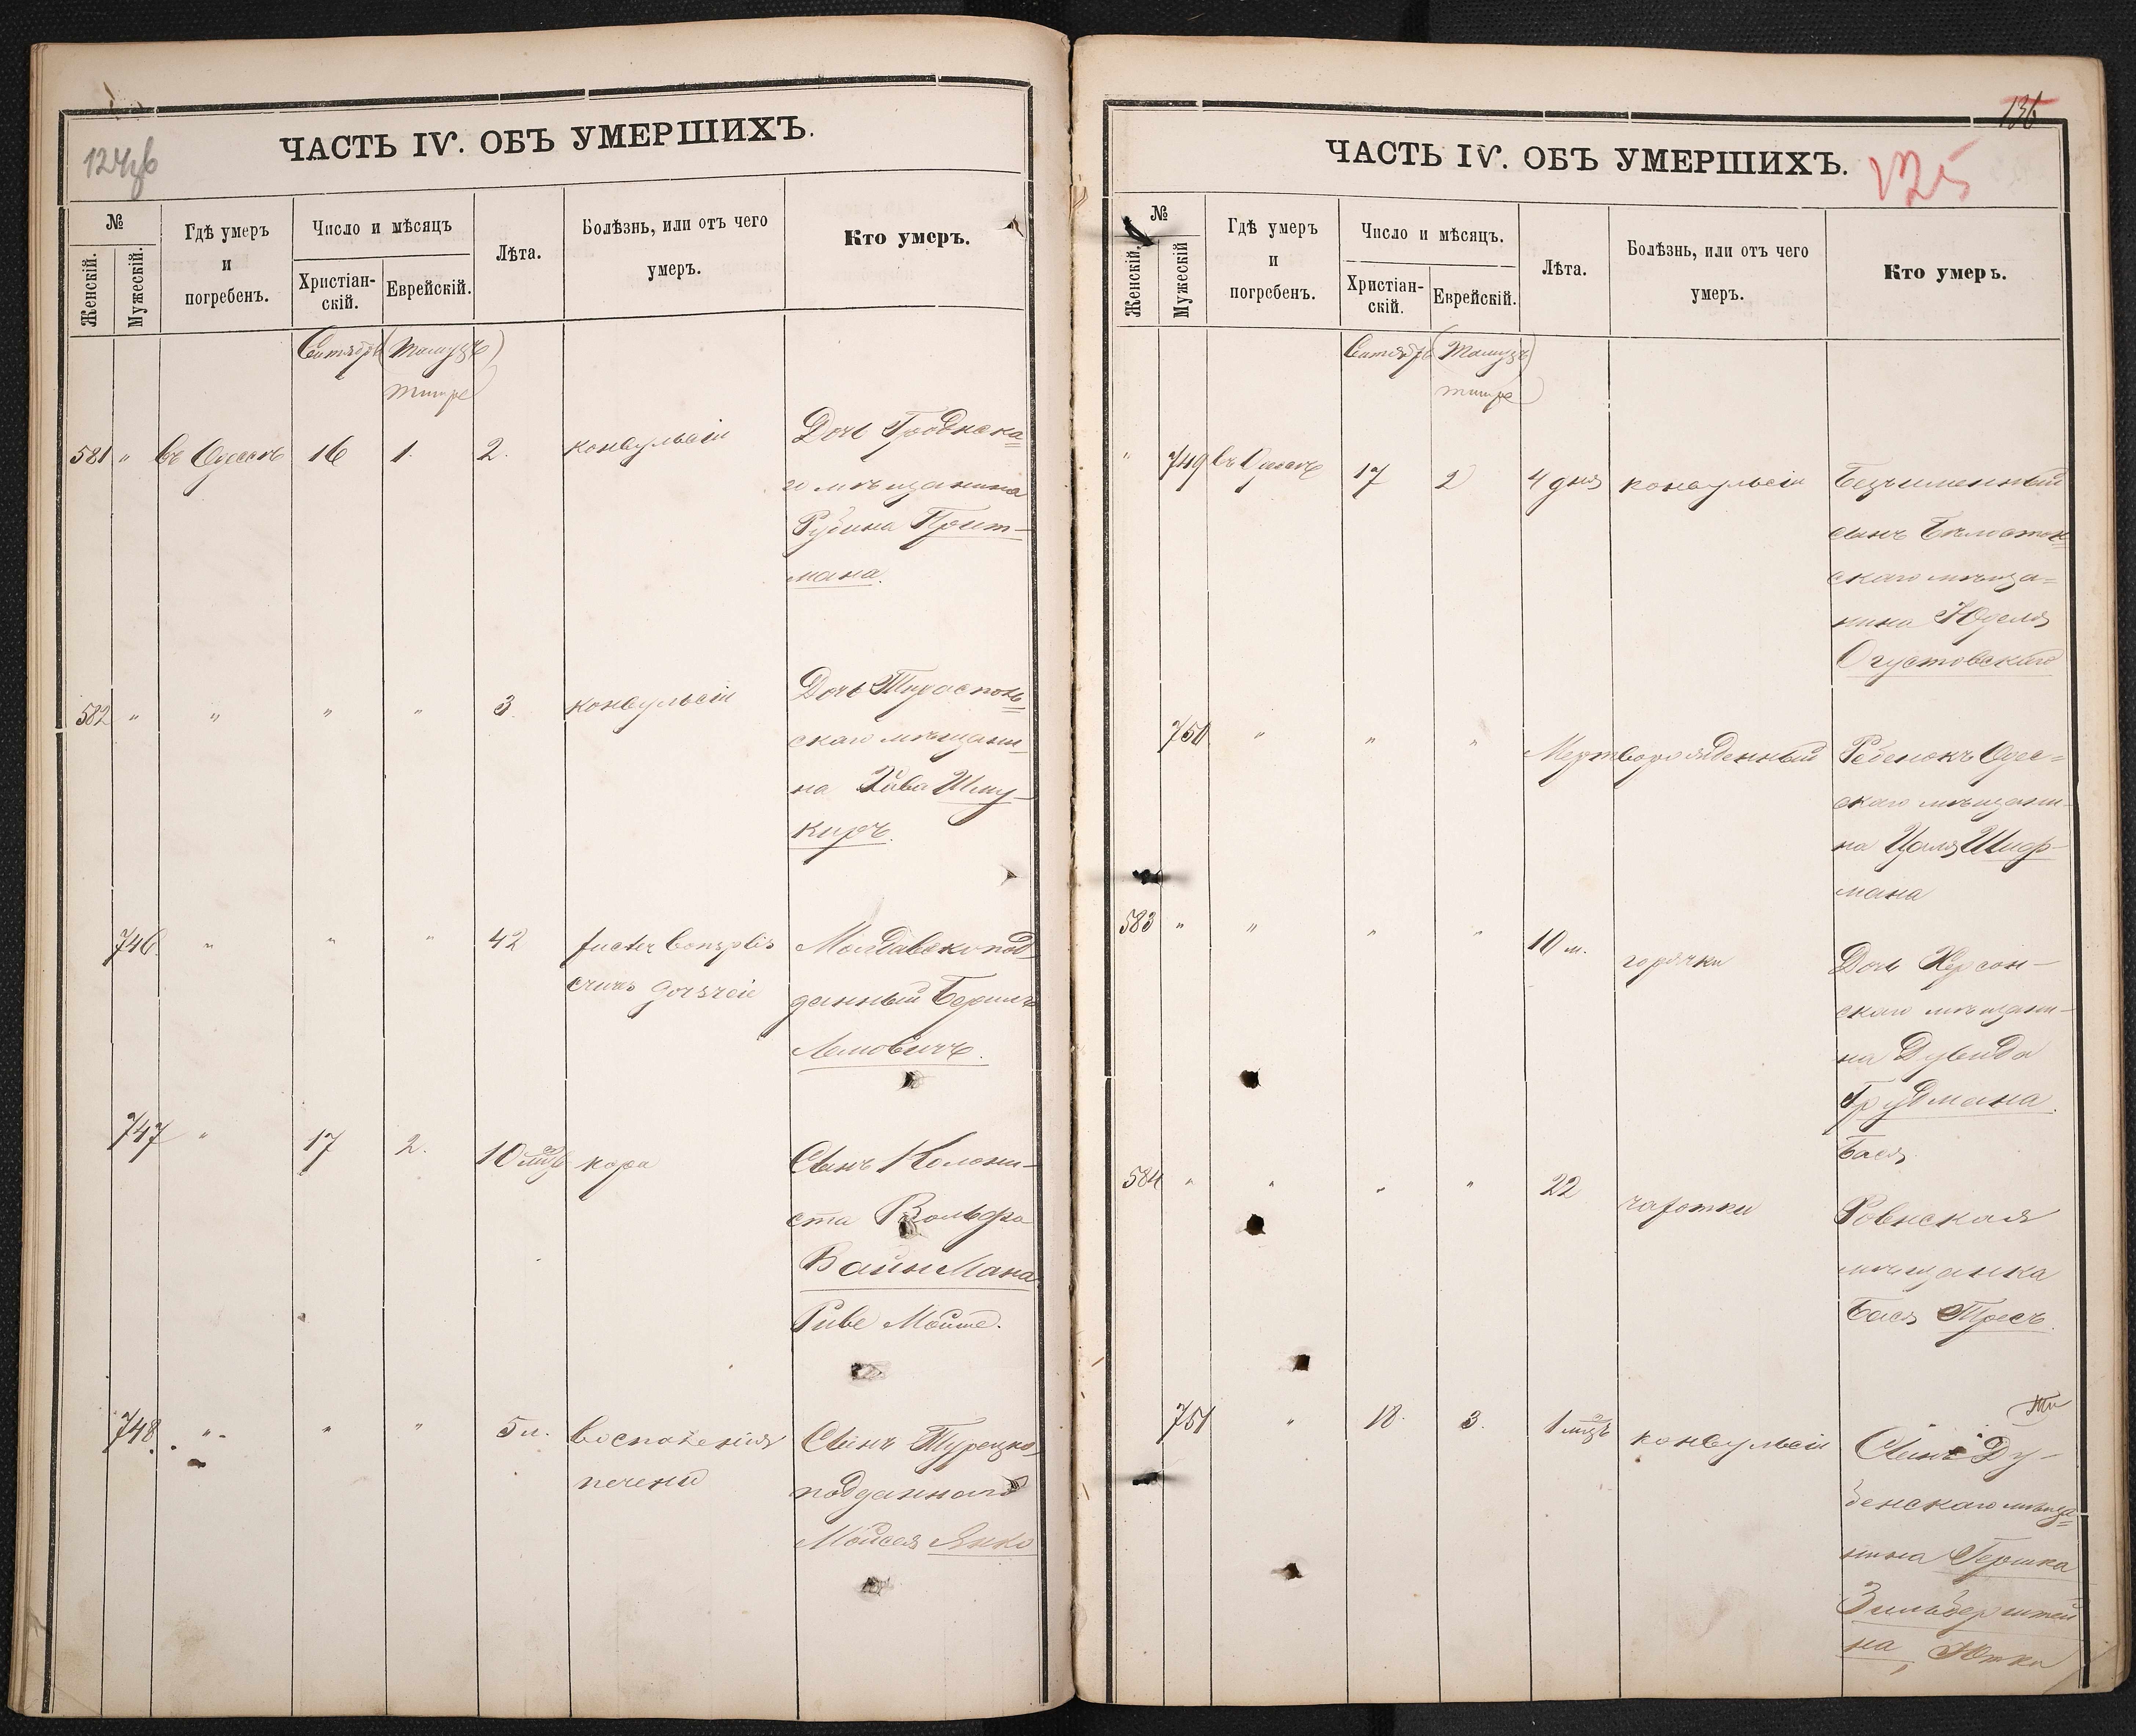 ЧАСТЬ IV. ОБЪ УМЕРШИХЪ.
№
Женскій.
Мужескій.
Гдѣ умеръ
и
погребенъ.
Число и мѣсяцъ
Христіан-
скій.
Еврейскій.
Лѣта.
Болѣзнь, или отъ чего
умеръ.
Кто умеръ.
Сентябрь
тишре
581 " въ Одессѣ 16 1. 2. конвульсіи
Дочь Гродненска=
го мѣщанина
Рубина Прит-
мана.
582 " " " " 3 конвульсіи
Дочь Тираспол=
скаго мѣщани-
на Шму-
киръ.
746 " " " 42
Молдавско под
данный Берилъ
747 " 17 2. 10 мцъ
Сынъ Колони-
ста Вольфа
ВайнМана
Мойше.
748 " " " 5 м. воспаленія
печени
Сынъ Турецко
подданнаго
Мойсея Янко
ЧАСТЬ IV. ОБЪ УМЕРШИХЪ.
136
125
№
Женскій.
Мужескій
Гдѣ умеръ
и
погребенъ.
Число и мѣсяцъ.
Христіан-
скій.
Еврейскій.
Лѣта.
Болѣзнь, или отъ чего
умеръ.
Кто умеръ.
Сентябрь
тишре
" 749 въ Одессѣ 17 2 4 дня конвульсіи
Безъименный
сынъ Бѣлосток=
скаго мѣща=
нина Юделя
Огустовскаго
750 " " " Мертворожденный
Ребенокъ Одес=
скаго мѣщани-
на Шиф-
мана
583 " " " " 10 м. горячки
Дочь Херсон-
скаго мѣщани-
на Дувида
Грудмана.
Бася
584 " " " " 22 чахотки
Ровнская
мѣщанка
Бася Тресъ.
751 " 18. 3. 1 мцъ конвульсіи
Сынъ Ду-
бенскаго мѣща=
нина Гершка
Зильберштей
на,